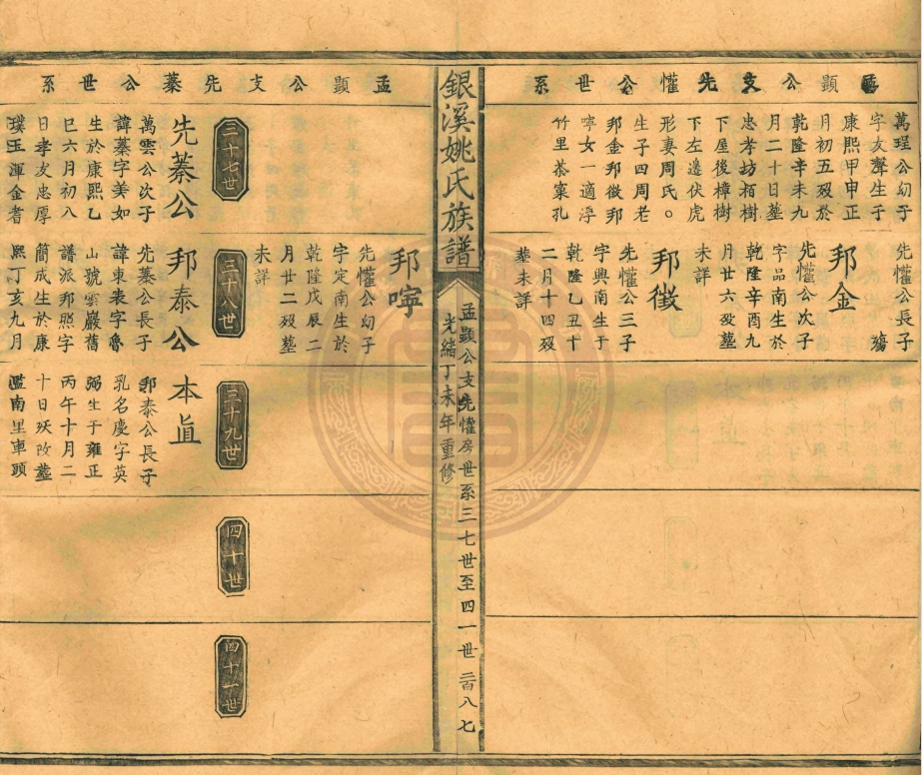 孟顯公支先懽公世系
萬珵公幼子
字友聲生子
康熙甲申正
月初五殁於
乾隆辛未九
月二十日墓
忠考坊栢樹
下屋後樟樹
下左邊伏虎
形妻周氏。
生子四周老
邦金邦徵邦
寧女一適浮
竹里葉家孔
先懽公長子
殤
邦金
先懽公次子
字品南生於
乾隆辛酉九
月廿六殁墓
未詳
邦徵
先懽公三子
字興南生于
乾隆乙丑十
二月十四殁
葬未詳
銀溪姚氏族譜
孟顯公支先懽房世系三七世至四一世 二百八七
光緒丁未年重修
孟顯公支先蓁公世系
邦寧
先懽公幼子
字定南生於
乾隆戊辰二
月廿二殁墓
未詳
三十七世
三十八世
三十九世
四十世
四十一世
先蓁公
萬雲公次子
諱蓁字美如
生於康熙乙
巳六月初八
日孝友忠厚
璞玉渾金耆
邦泰公
先蓁公長子
諱東表字魯
山號雲巖舊
譜派邦熙字
簡成生於康
熙丁亥九月
本眞
邦泰公長子
乳名慶字英
弼生于雍正
丙午十月二
十日殁改葬
濫南里車頭